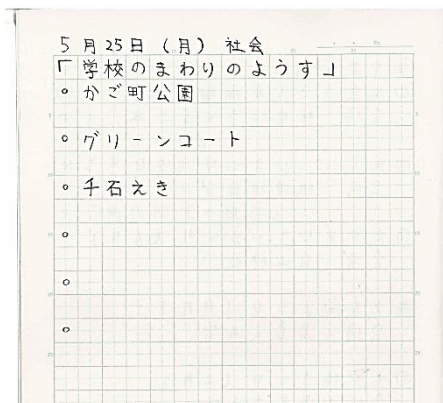 5月25日(月) 社会
「学校のまわりのようす」
○かご町公園
○グリーンコート
○千石えき
○
○
○